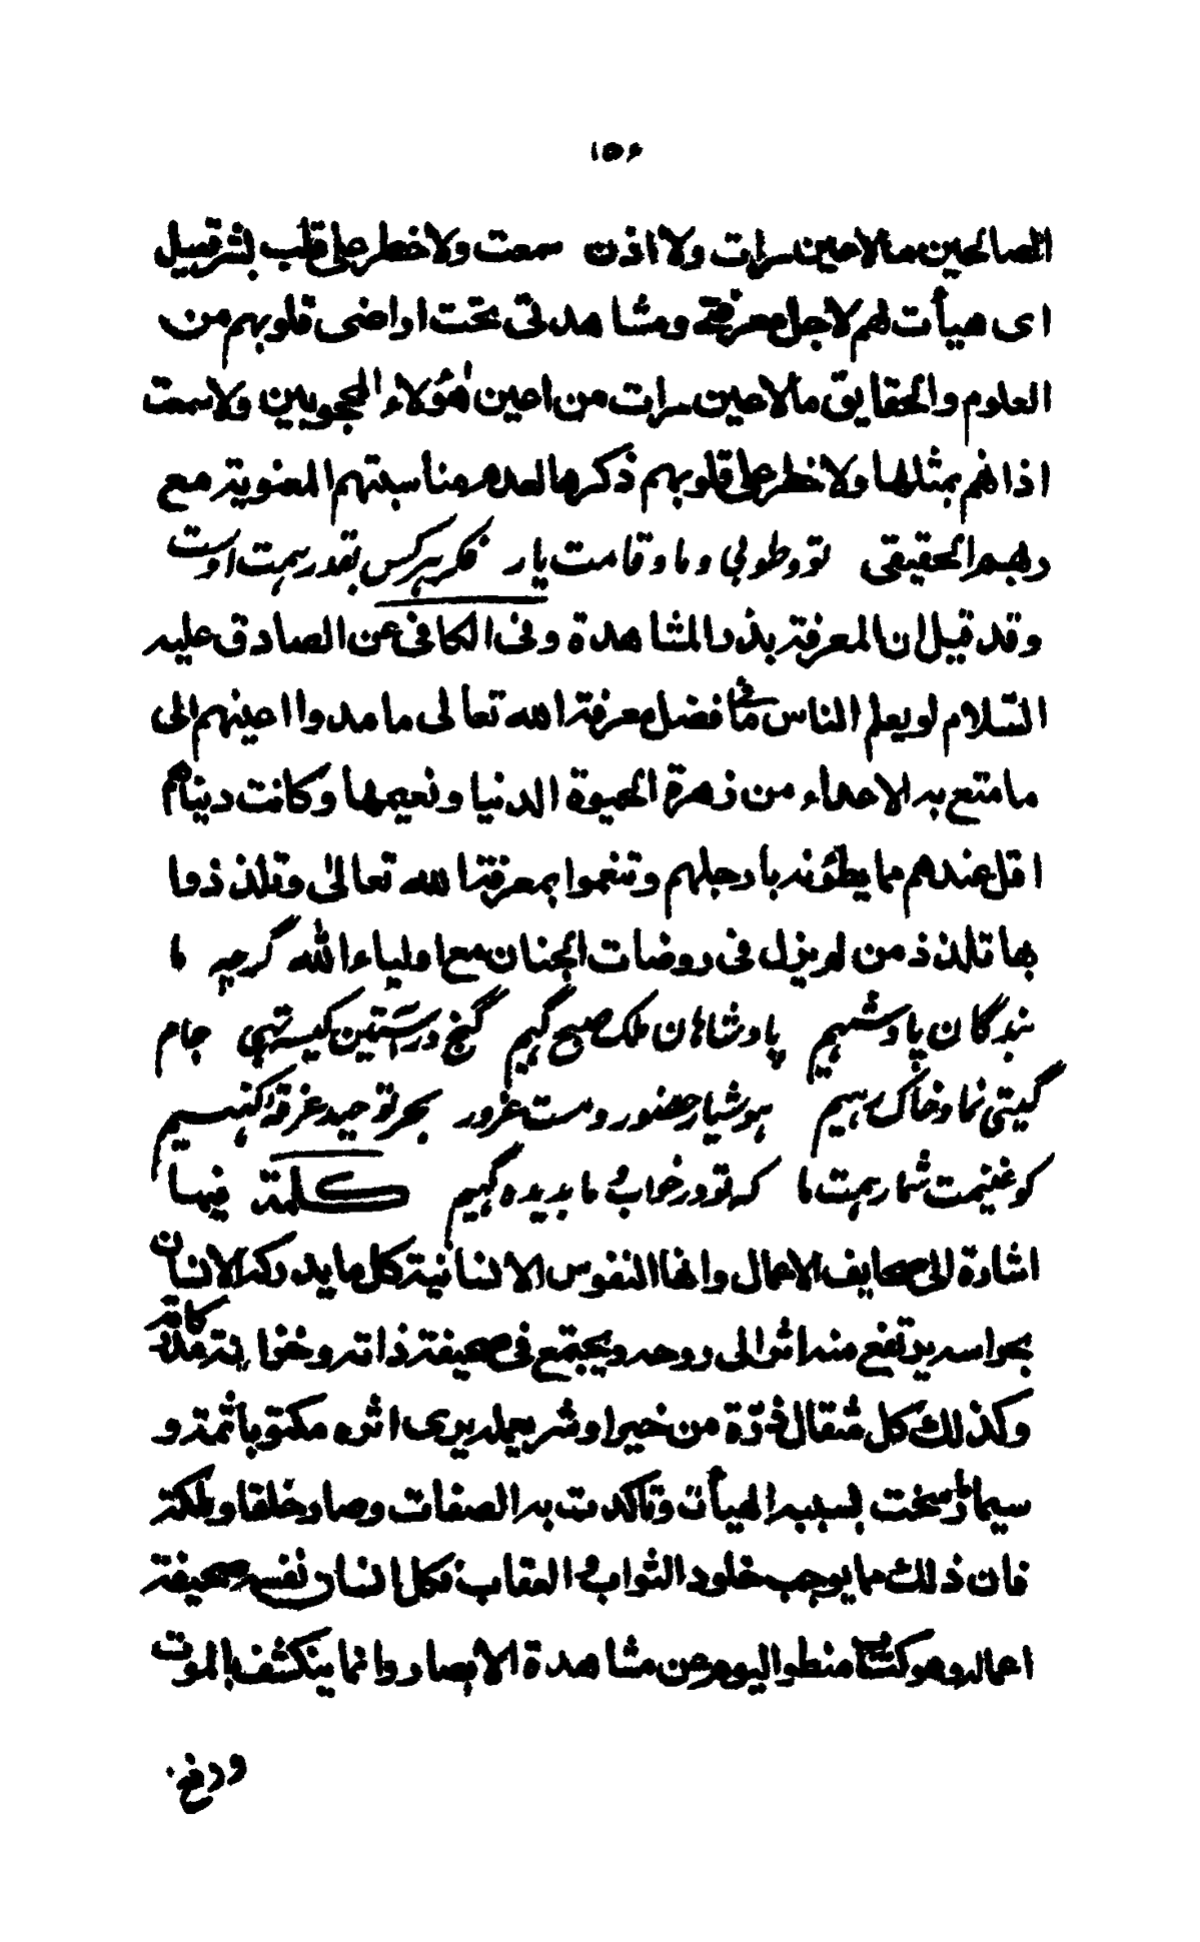 ١٥٦
الصالحين مالاعين رات ولا اذن سمعت ولاخطر على قلب بشر قيل
اى هيأت لهم لاجل معرفتى ومشاهدتى تحت اواضى قلوبهم من
العلوم والحقايق مالاعين رات من اعين هؤلاء المحجوبين ولاسمعت
اذانهم بمثلها ولاخطر على قلوبهم ذكرها لعدم مناسبتهم المعنوية مع
ربهم الحقيقى تو وطوبى وما وقامت يار فكر هركس بقدر همت اوست
وقد قيل ان المعرفة بذر المشاهدة وفى الكافى عن الصادق عليه
السّلام لو يعلم الناس ما فى فضل معرفة الله تعالى ما مدوا اعينهم الى
ما متع به الاعداء من زهرة الحيوة الدنيا ونعيمها وكانت دنياهم
اقل عندهم مما يطؤنه بارجلهم وتنعموا بمعرفة الله تعالى وتلذذوا
بها تلذذ من لم يزل فى روضات الجنان مع اولياء الله گرچه ما
بندگان پادشهيم پادشاهان ملك صبح گهيم گنج در آستين كيسه تهى جام
گيتى نما وخاك رهيم هوشيار حضور ومست غرور بحر توحيد غرقه گنهيم
گو غنيمت شمار همت ما كه تو در خواب وما بديده گهيم كلمة فيها
اشارة الى صحايف الاعمال وانها النفوس الانسانية كل ما يدركه الانسان
بحواسه يرتفع منه اثر الى روحه ويجتمع فى صحيفة ذاته وخزانة مدركاته
وكذلك كل مثقال ذرّة من خير او شر يعمله يرى اثره مكتوبا ثمة و
سيما رسخت بسببه الهيأت وتاكدت به الصفات وصار خلقا وملكة
فان ذلك مما يوجب خلود الثواب والعقاب فكل انسان نفسه صحيفة
اعماله وهو كتاب منطو اليوم عن مشاهدة الابصار وانما ينكشف بالموت
ورفع